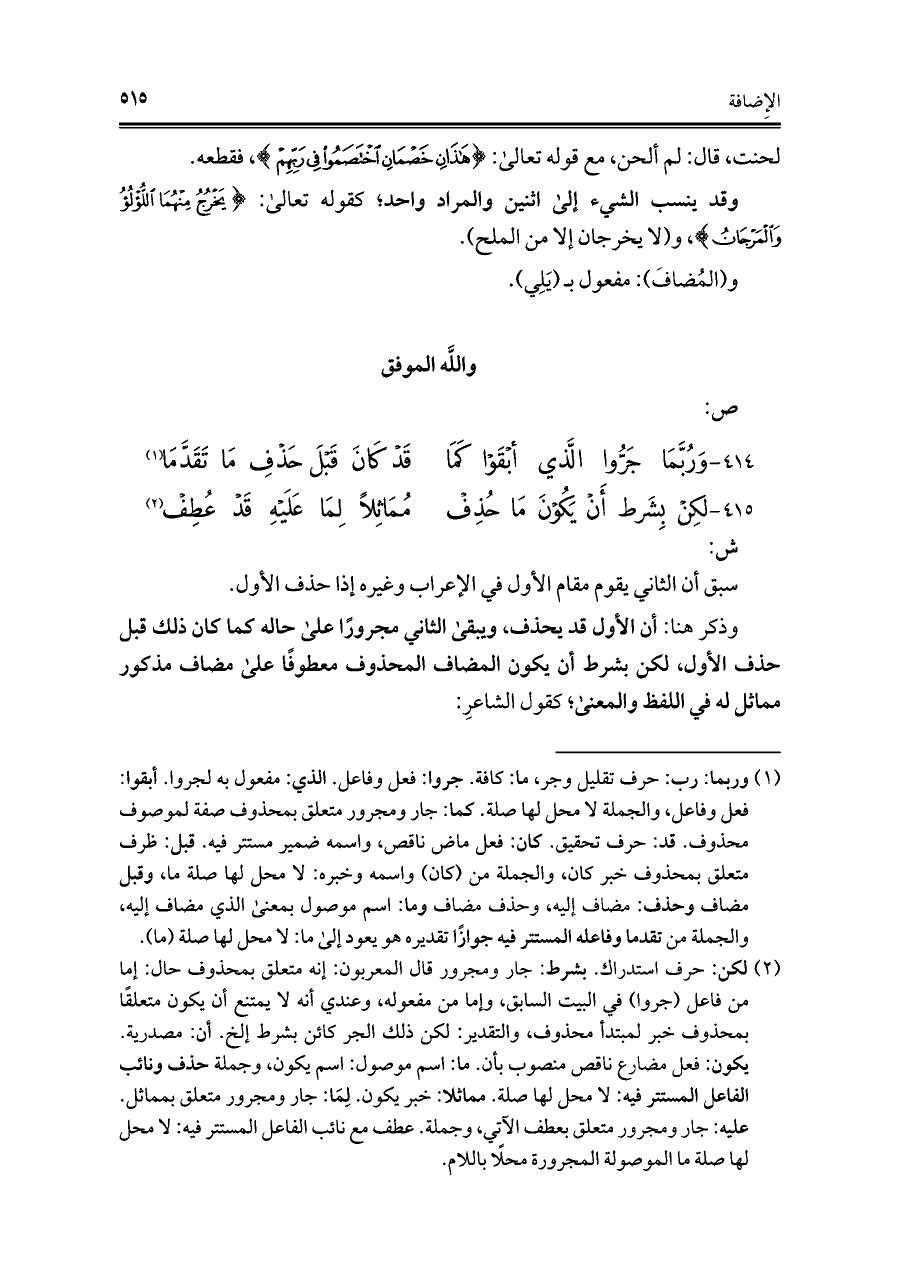 الإضافة ٥١٥
لحنت، قال: لم ألحن، مع قوله تعالىٰ: ﴿هَٰذَانِ خَصْمَانِ ٱخْتَصَمُوا۟ فِى رَبِّهِمْ﴾، فقطعه.
وقد ينسب الشيء إلىٰ اثنين والمراد واحد؛ كقوله تعالىٰ: ﴿يَخْرُجُ مِنْهُمَا ٱللُّؤْلُؤُ
وَٱلْمَرْجَانُ﴾، و(لا يخرجان إلا من الملح).
و(المُضافَ): مفعول بـ (يَلِي).
واللَّه الموفق
ص:
٤١٤-وَرُبَّمَا جَرُّوا الَّذِي أَبْقَوْا كَمَا قَدْ كَانَ قَبْلَ حَذْفِ مَا تَقَدَّمَا(١)
٤١٥-لَكِنْ بِشَرطِ أَنْ يَكُوْنَ مَا حُذِفْ مُمَاثِلاً لِمَا عَلَيْهِ قَدْ عُطِفْ(٢)
ش:
سبق أن الثاني يقوم مقام الأول في الإعراب وغيره إذا حذف الأول.
وذكر هنا: أن الأول قد يحذف، ويبقىٰ الثاني مجرورًا علىٰ حاله كما كان ذلك قبل
حذف الأول، لكن بشرط أن يكون المضاف المحذوف معطوفًا علىٰ مضاف مذكور
مماثل له في اللفظ والمعنىٰ؛ كقول الشاعرِ:
(١) وربما: رب: حرف تقليل وجر، ما: كافة. جروا: فعل وفاعل. الذي: مفعول به لجروا. أبقوا:
فعل وفاعل، والجملة لا محل لها صلة. كما: جار ومجرور متعلق بمحذوف صفة لموصوف
محذوف. قد: حرف تحقيق. كان: فعل ماض ناقص، واسمه ضمير مستتر فيه. قبل: ظرف
متعلق بمحذوف خبر كان، والجملة من (كان) واسمه وخبره: لا محل لها صلة ما، وقبل
مضاف وحذف: مضاف إليه، وحذف مضاف وما: اسم موصول بمعنىٰ الذي مضاف إليه،
والجملة من تقدما وفاعله المستتر فيه جوازًا تقديره هو يعود إلىٰ ما: لا محل لها صلة (ما).
(٢) لكن: حرف استدراك. بشرط: جار ومجرور قال المعربون: إنه متعلق بمحذوف حال: إما
من فاعل (جروا) في البيت السابق، وإما من مفعوله، وعندي أنه لا يمتنع أن يكون متعلقًا
بمحذوف خبر لمبتدأ محذوف، والتقدير: لكن ذلك الجر كائن بشرط إلخ. أن: مصدرية.
يكون: فعل مضارع ناقص منصوب بأن. ما: اسم موصول: اسم يكون، وجملة حذف ونائب
الفاعل المستتر فيه: لا محل لها صلة. مماثلا: خبر يكون. لِمَا: جار ومجرور متعلق بمماثل.
عليه: جار ومجرور متعلق بعطف الآتي، وجملة. عطف مع نائب الفاعل المستتر فيه: لا محل
لها صلة ما الموصولة المجرورة محلًا باللام.